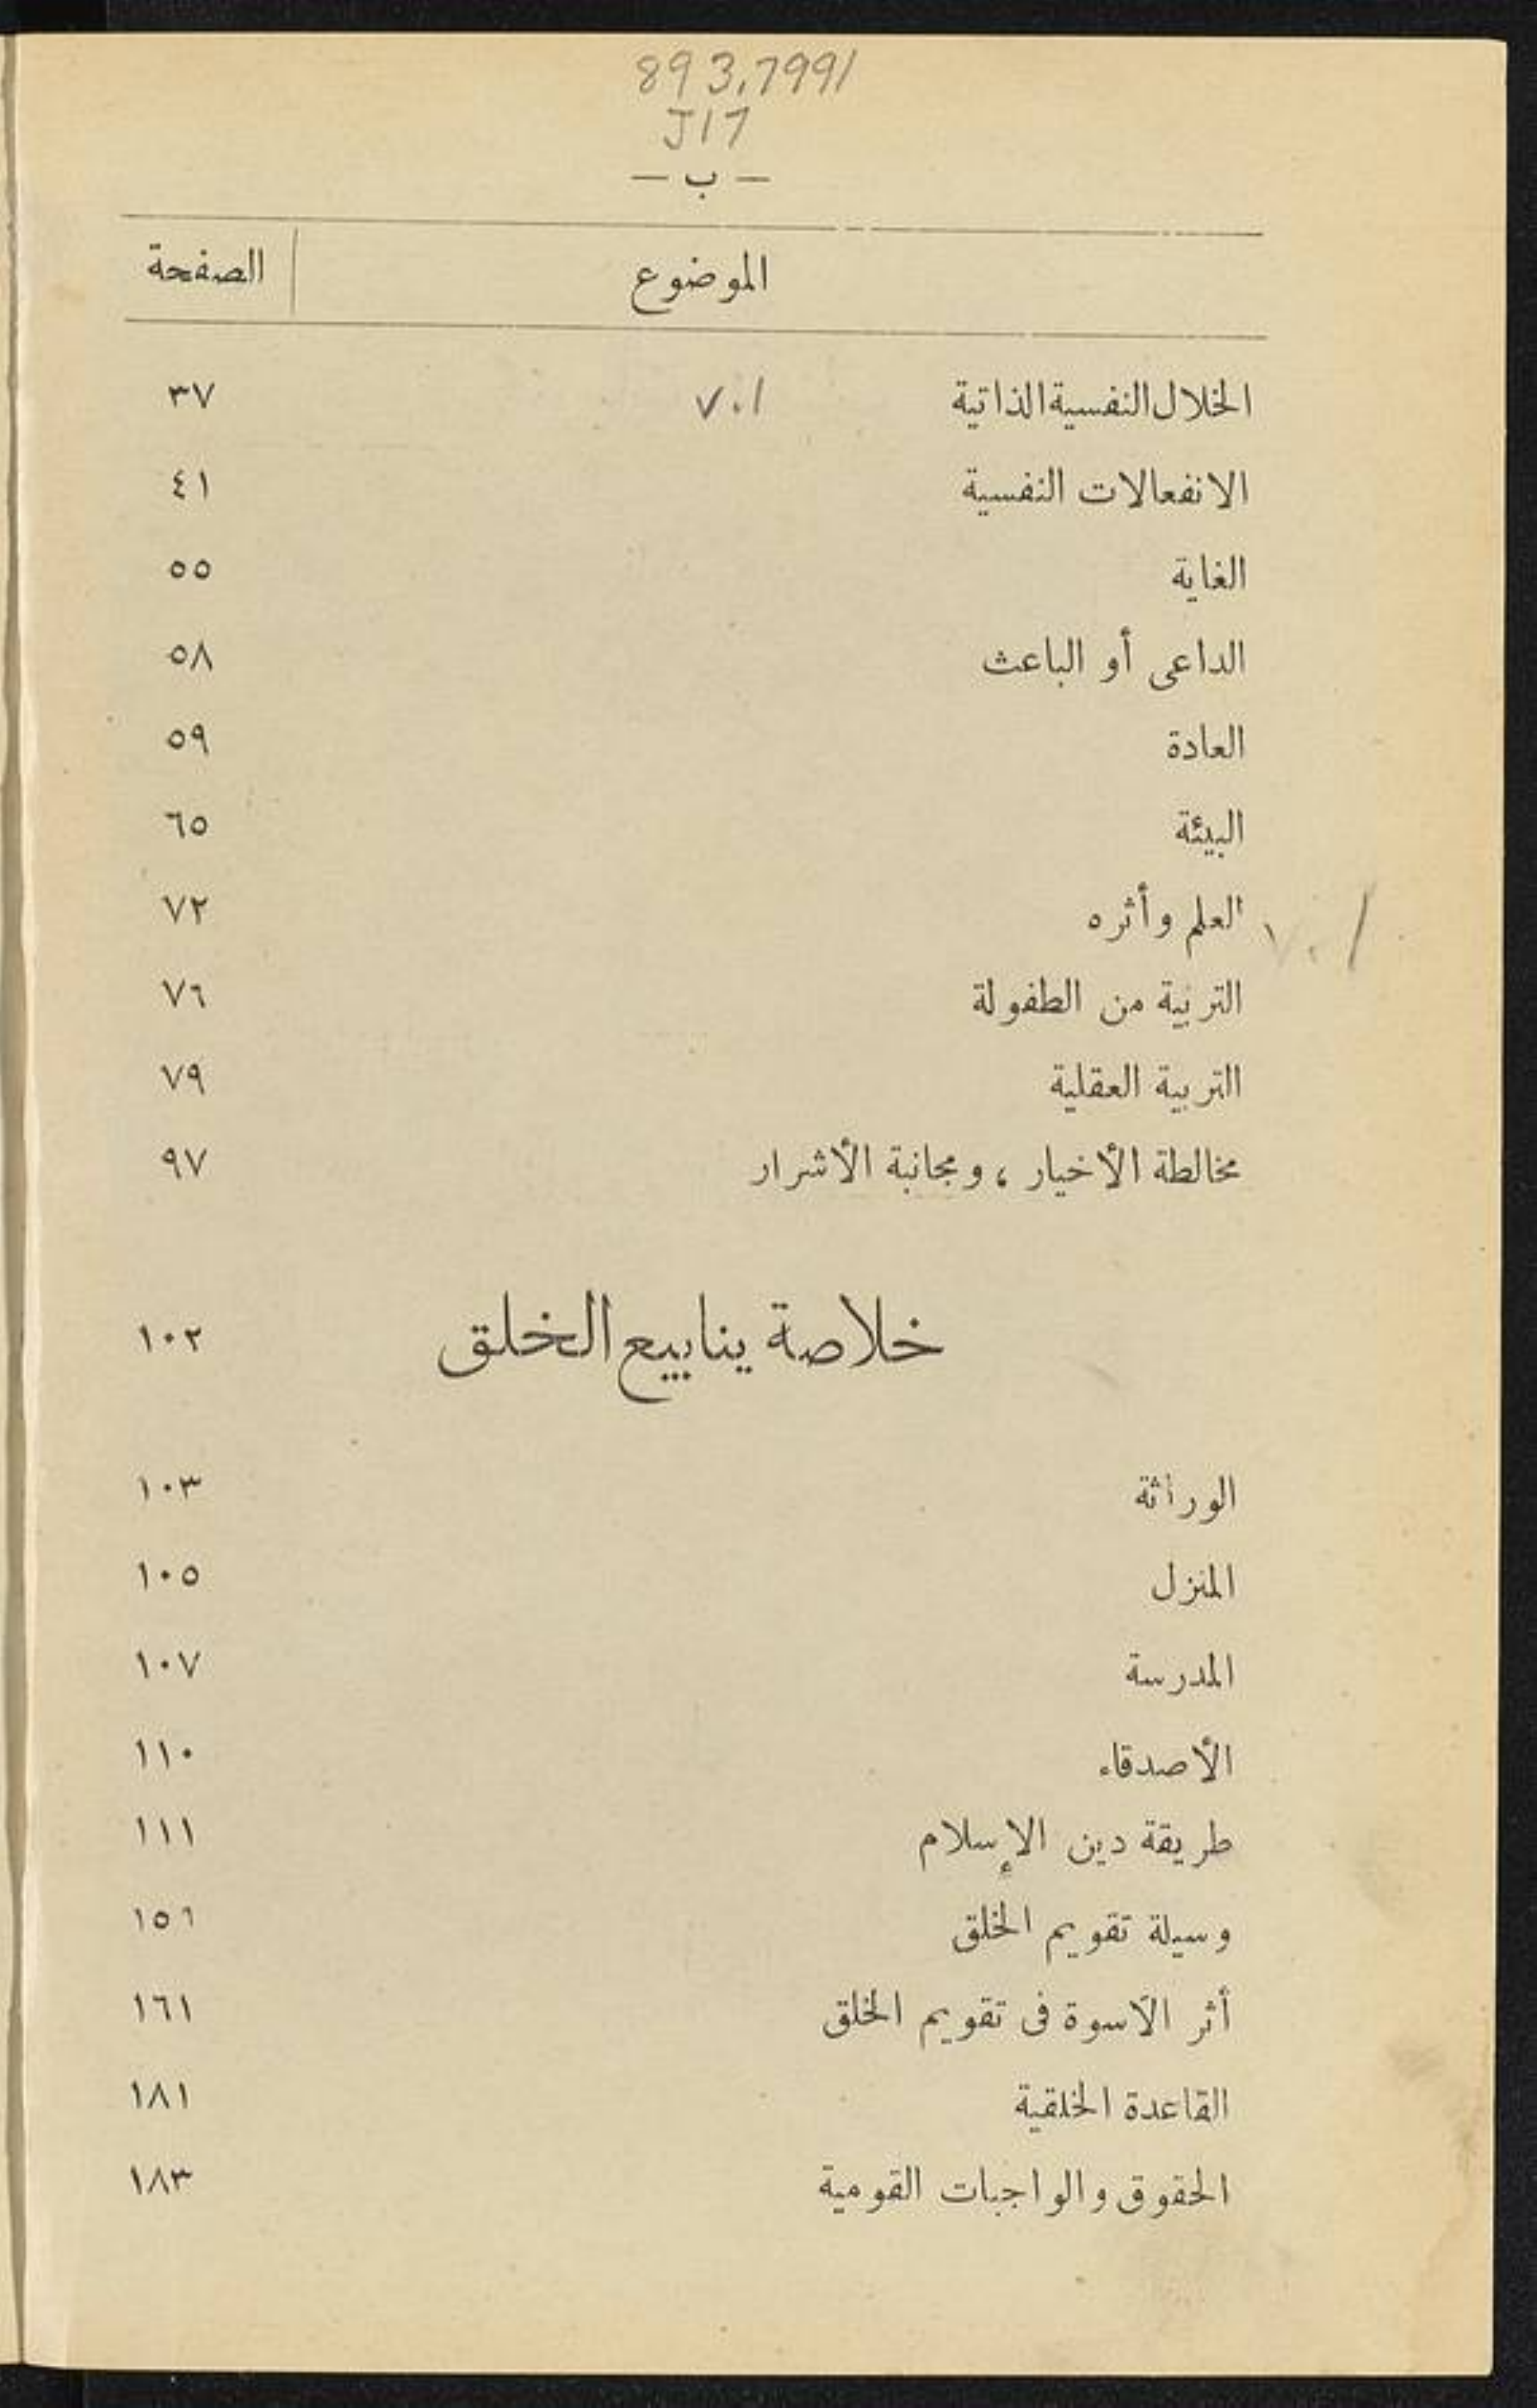 893.7991
J17
— ب —
الموضوع الصفحة
الخلال النفسية الذاتية v.1 ٣٧
الانفعالات النفسية ٤١
الغاية ٥٥
الداعى أو الباعث ٥٨
العادة ٥٩
البيئة ٦٥
العلم وأثره ٧٢
التربية من الطفولة ٧٦
التربية العقلية ٧٩
مخالطة الأخيار ، ومجانبة الأشرار ٩٧
خلاصة ينابيع الخلق ١٠٢
الوراثة ١٠٣
المنزل ١٠٥
المدرسة ١٠٧
الأصدقاء ١١٠
طريقة دين الإسلام ١١١
وسيلة تقويم الخلق ١٥٦
أثر الأسوة فى تقويم الخلق ١٦١
القاعدة الخلقية ١٨١
الحقوق والواجبات القومية ١٨٣